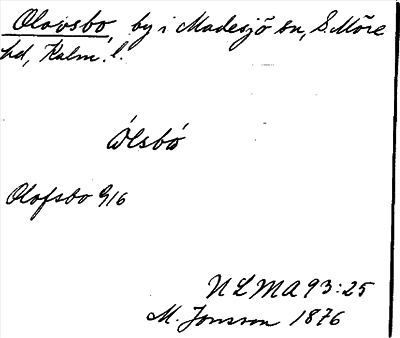 Olovsbo, by i Madesjö sn, S. Möre
hd, Kalm. l.
Ólsbó
Olofsbo G16
NLMA93:25
M. Jonsson 1876